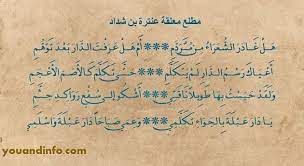 مطلع معلقة عنترة بن شداد
هَلْ غَادَرَ الشُّعَرَاءُ مِنْ مُتَرَدَّمِ *** أَمْ هَلْ عَرَفْتَ الدَّارَ بَعْدَ تَوَهُّمِ
أَعْيَاكَ رَسْمُ الدَّارِ لَمْ يَتَكَلَّمِ *** حَتَّى تَكَلَّمَ كَالأَصَمِّ الأَعْجَمِ
وَلَقَدْ حَبَسْتُ بِهَا طَوِيلاً نَاقَتِي *** أَشْكُو إِلَى سُفْعٍ رَوَاكِدَ جُثَّمِ
يَا دَارَ عَبْلَةَ بِالجَوَاءِ تَكَلَّمِي *** وَعَمِي صَبَاحًا دَارَ عَبْلَةَ وَاسْلَمِي
youandinfo.com